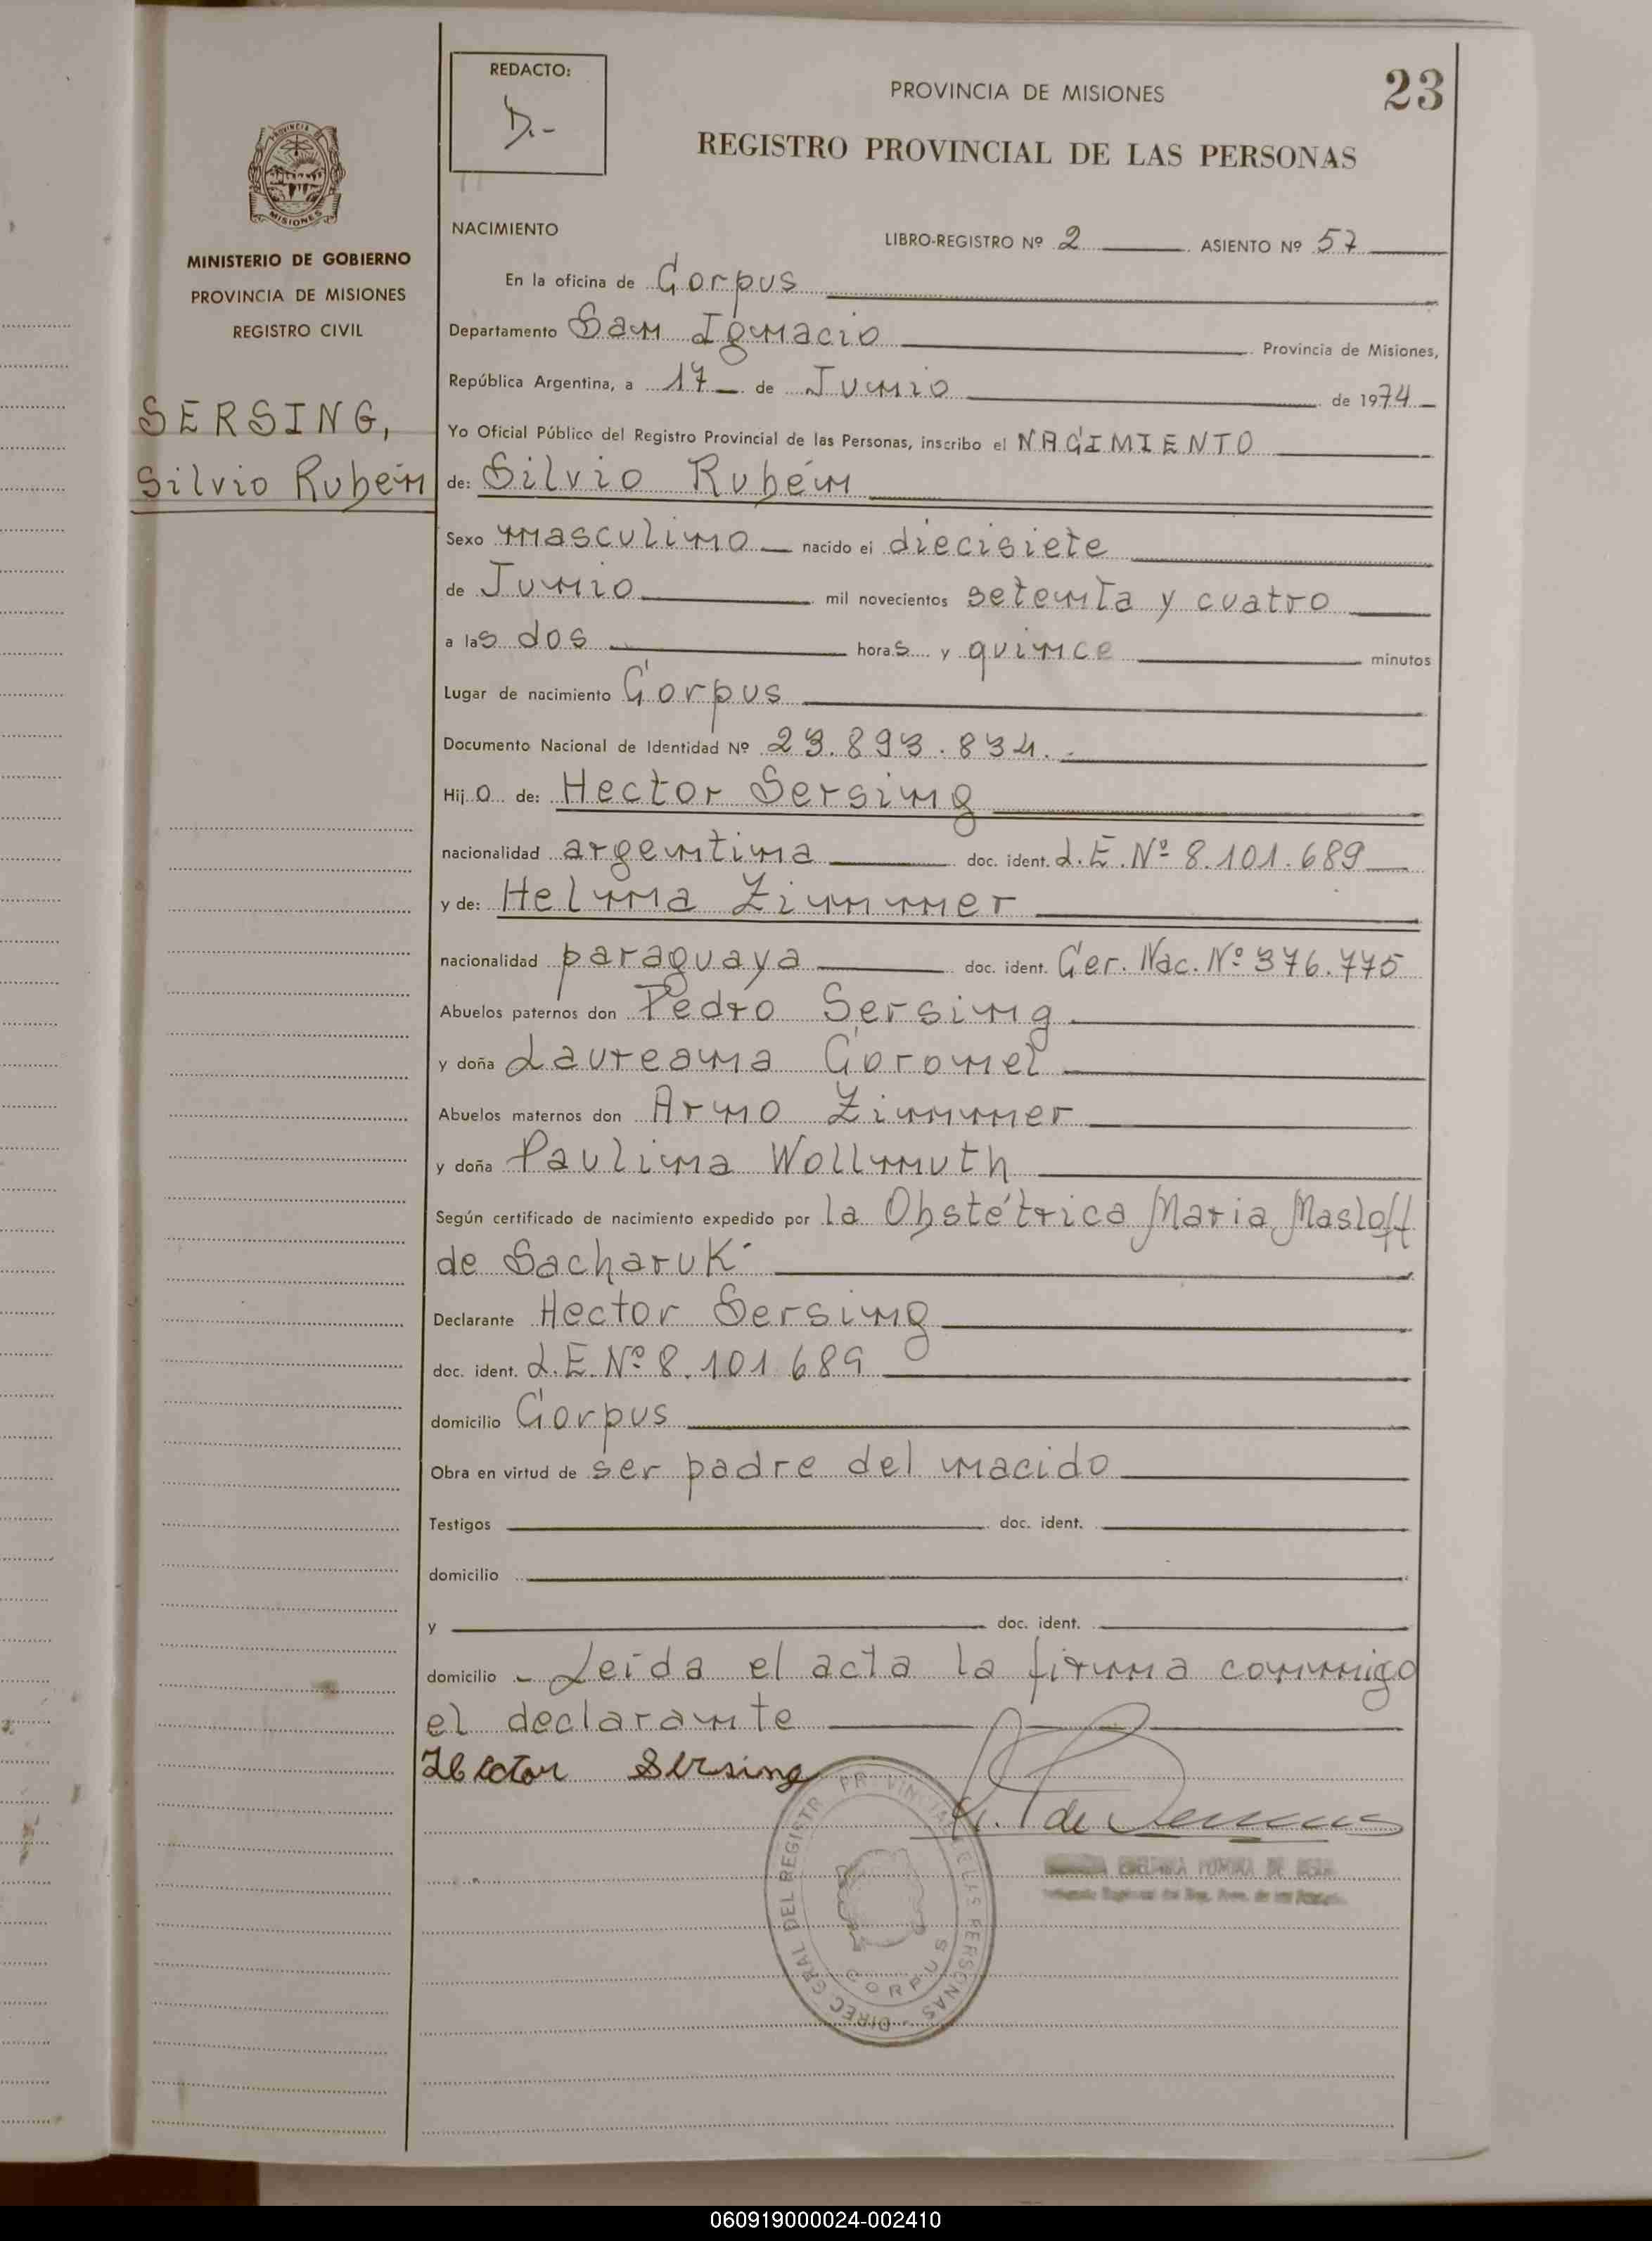 REDACTO:
D.-
PROVINCIA DE MISIONES
23
REGISTRO PROVINCIAL DE LAS PERSONAS
PROVINCIA DE
MISIONES
MINISTERIO DE GOBIERNO
PROVINCIA DE MISIONES
REGISTRO CIVIL
SERSING,
Silvio Rubén
NACIMIENTO
LIBRO-REGISTRO Nº 2 ASIENTO Nº 57
En la oficina de Corpus
Departamento San Ignacio Provincia de Misiones,
República Argentina, a 17 de Junio de 1974
Yo Oficial Público del Registro Provincial de las Personas, inscribo el NACIMIENTO
de: Silvio Rubén
Sexo masculino nacido el diecisiete
de Junio mil novecientos setenta y cuatro
a las dos horas y quince minutos
Lugar de nacimiento Corpus
Documento Nacional de Identidad Nº 23.893.834.-
Hijo de: Hector Sersing
nacionalidad argentina doc. ident. L.E.Nº 8.101.689
y de: Helma Zimmer
nacionalidad paraguaya doc. ident. Cer. Nac. Nº 376.775
Abuelos paternos don Pedro Sersing
y doña Laureana Coronel
Abuelos maternos don Arno Zimmer
y doña Paulina Wollmuth
Según certificado de nacimiento expedido por la Obstétrica Maria Masloff
de Sacharuk
Declarante Hector Sersing
doc. ident. L.E.Nº 8.101689
domicilio Corpus
Obra en virtud de ser padre del nacido
Testigos doc. ident.
domicilio
y doc. ident.
domicilio - Leida el acta la firma conmigo
el declarante
Hector Sersing
DIREC GRAL DEL REGISTR PR VINCIAL E LAS PERSONAS
CORPUS
060919000024-002410